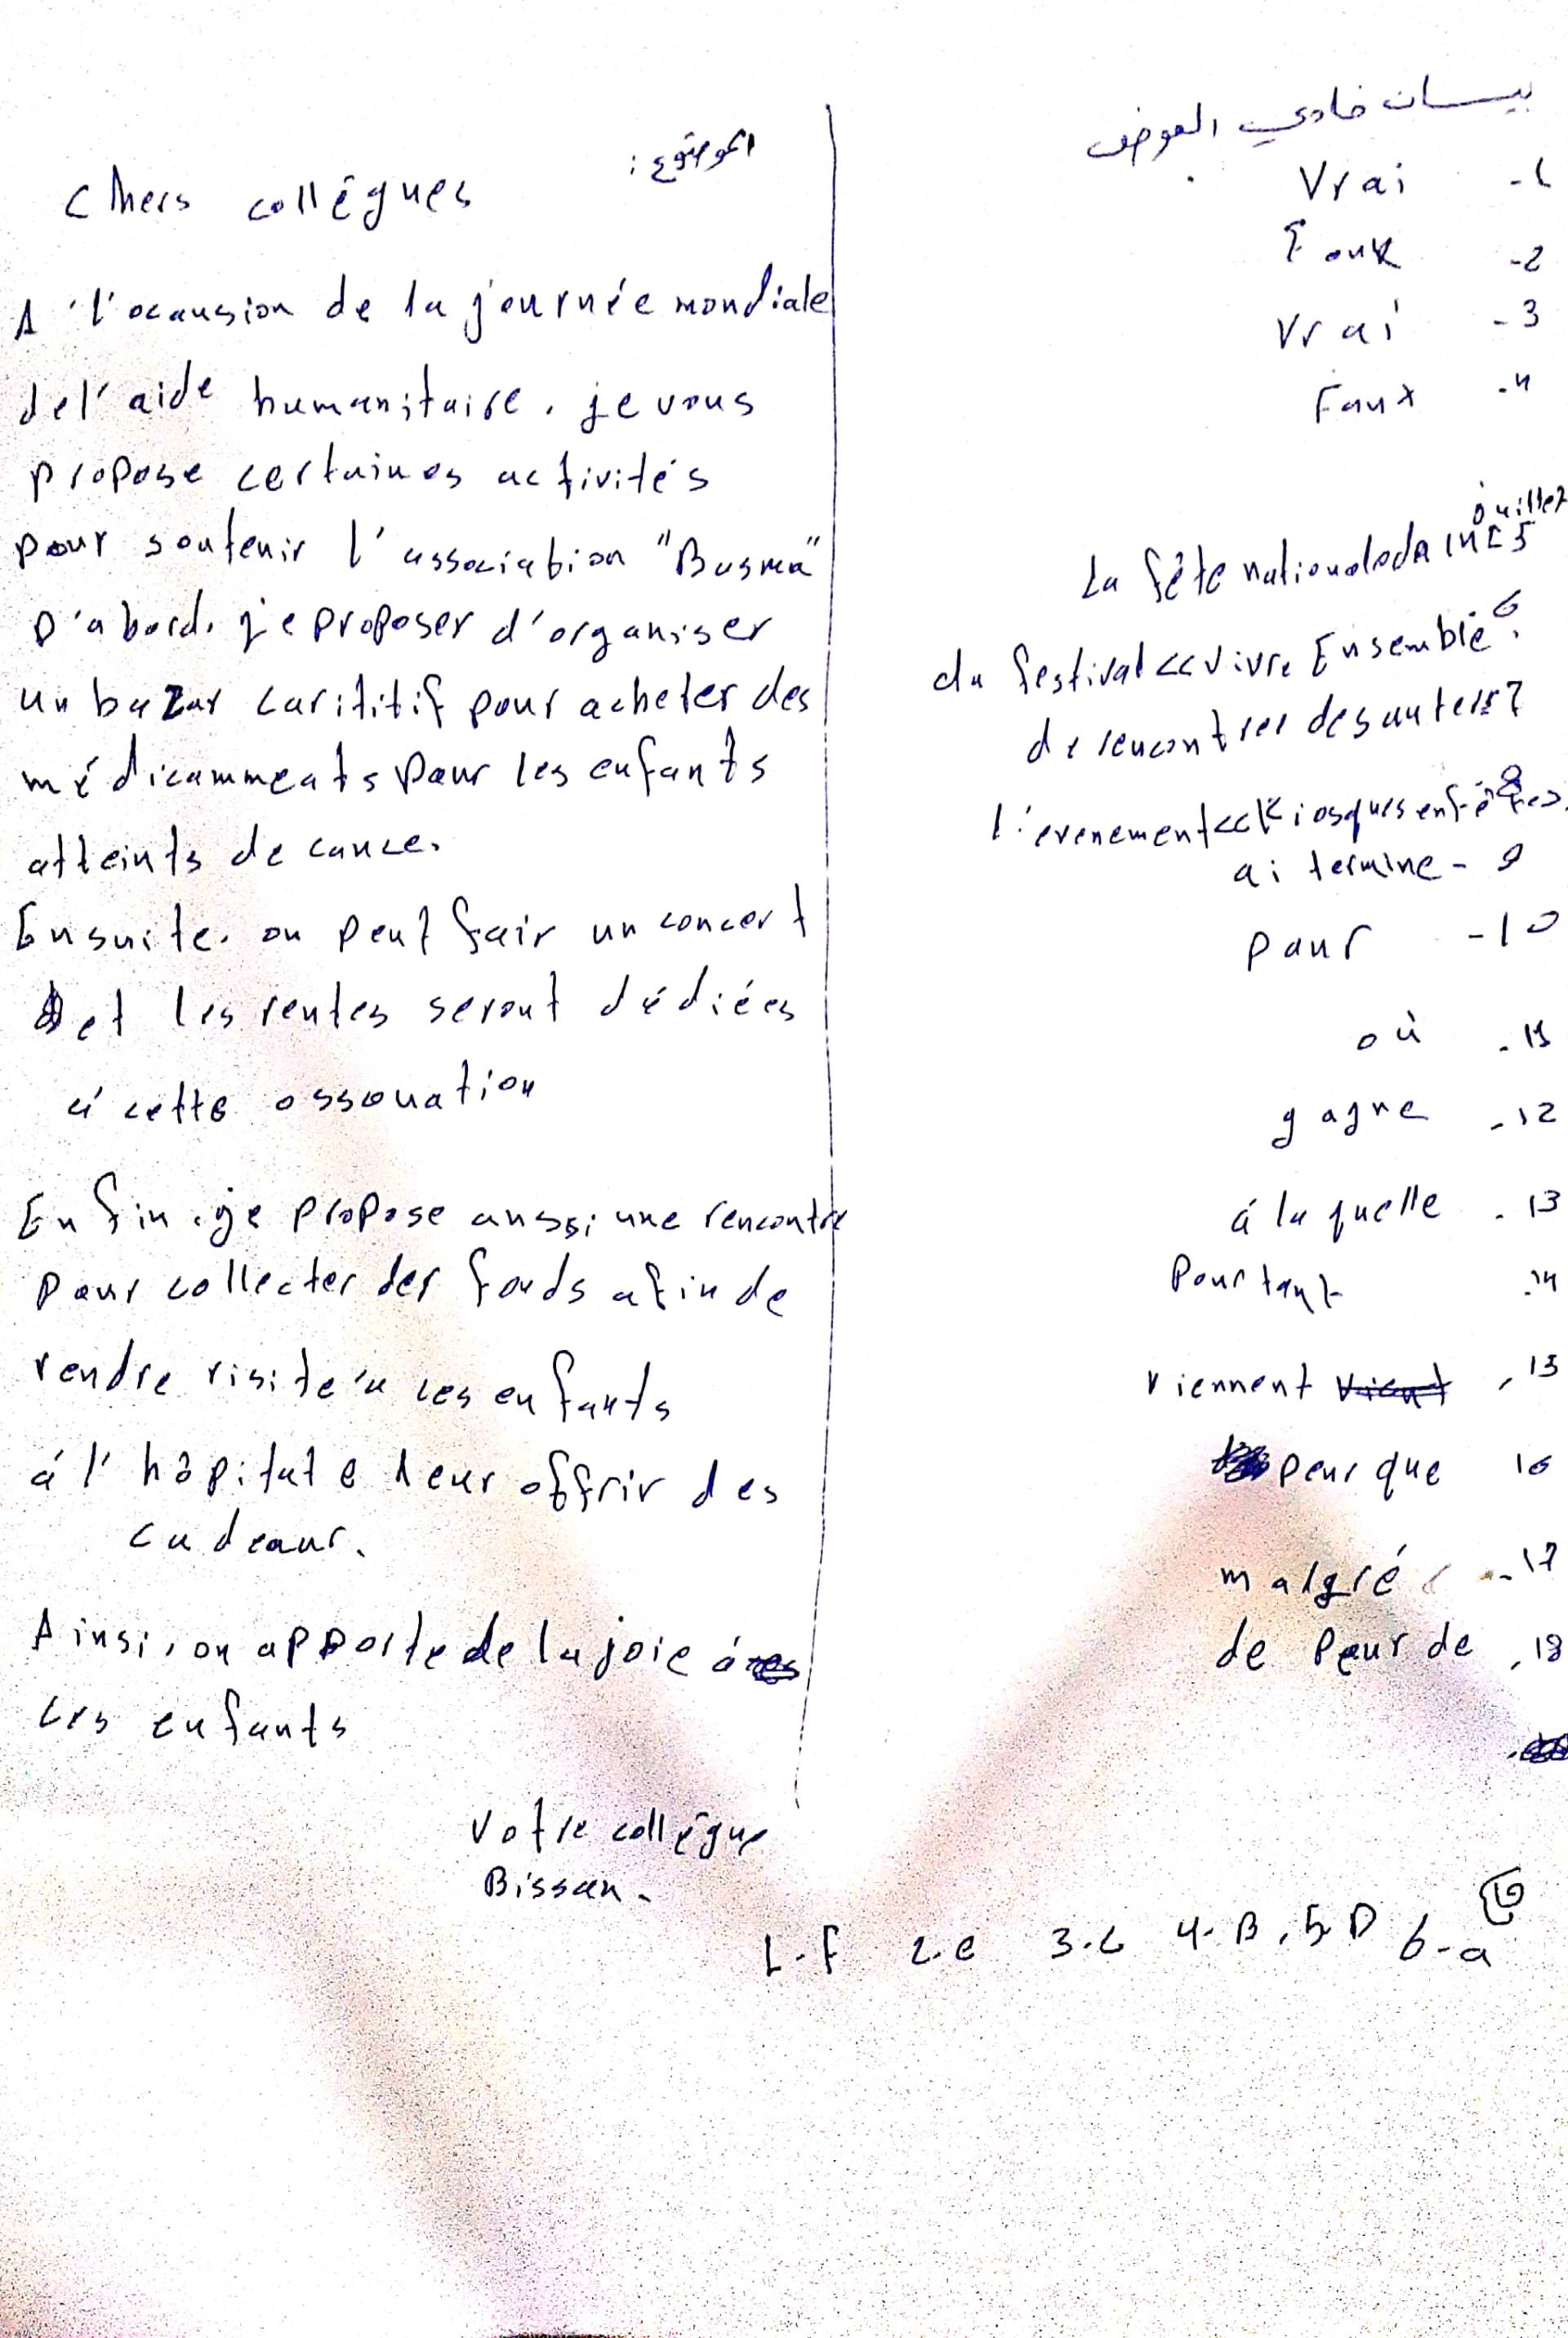 بيسان فادي العوض
Vrai -1
Faux -2
Vrai -3
Faux -4
juillet
La fête nationale da 14 5
du festival <<vivre Ensemble 6
de rencontrer des auters 7
l'evenement <<Kiosques en fêtes>> 8
ai termine - 9
pour -10
où .11
gagne -12
á la quelle . 13
Pour tant .14
viennent ,15
peur que 16
malgré -17
de Peur de ,18
الموضوع :
Chers collègues
A 'l'ocausion de la journée mondiale
del'aide humanitaire. je vous
propose certaines activités
pour soutenir l'association "Busma"
D'abord. je proposer d'organiser
un bazar carititif pour acheter des
médicamments pour les enfants
atteints de cance.
Ensuite. on peut fair un concert
et les rentes seront dédiées
á cette assouation
En fin. je propose aussi une rencontre
pour collecter des fonds afin de
rendre visite 'a ces enfants
á l'hôpital e leur offrir des
cadeaur.
Ainsi, on apporte de la joie á
ces enfants
Votre collègue
Bissan.
1-F 2.e 3.c 4-B, 5 D 6-a